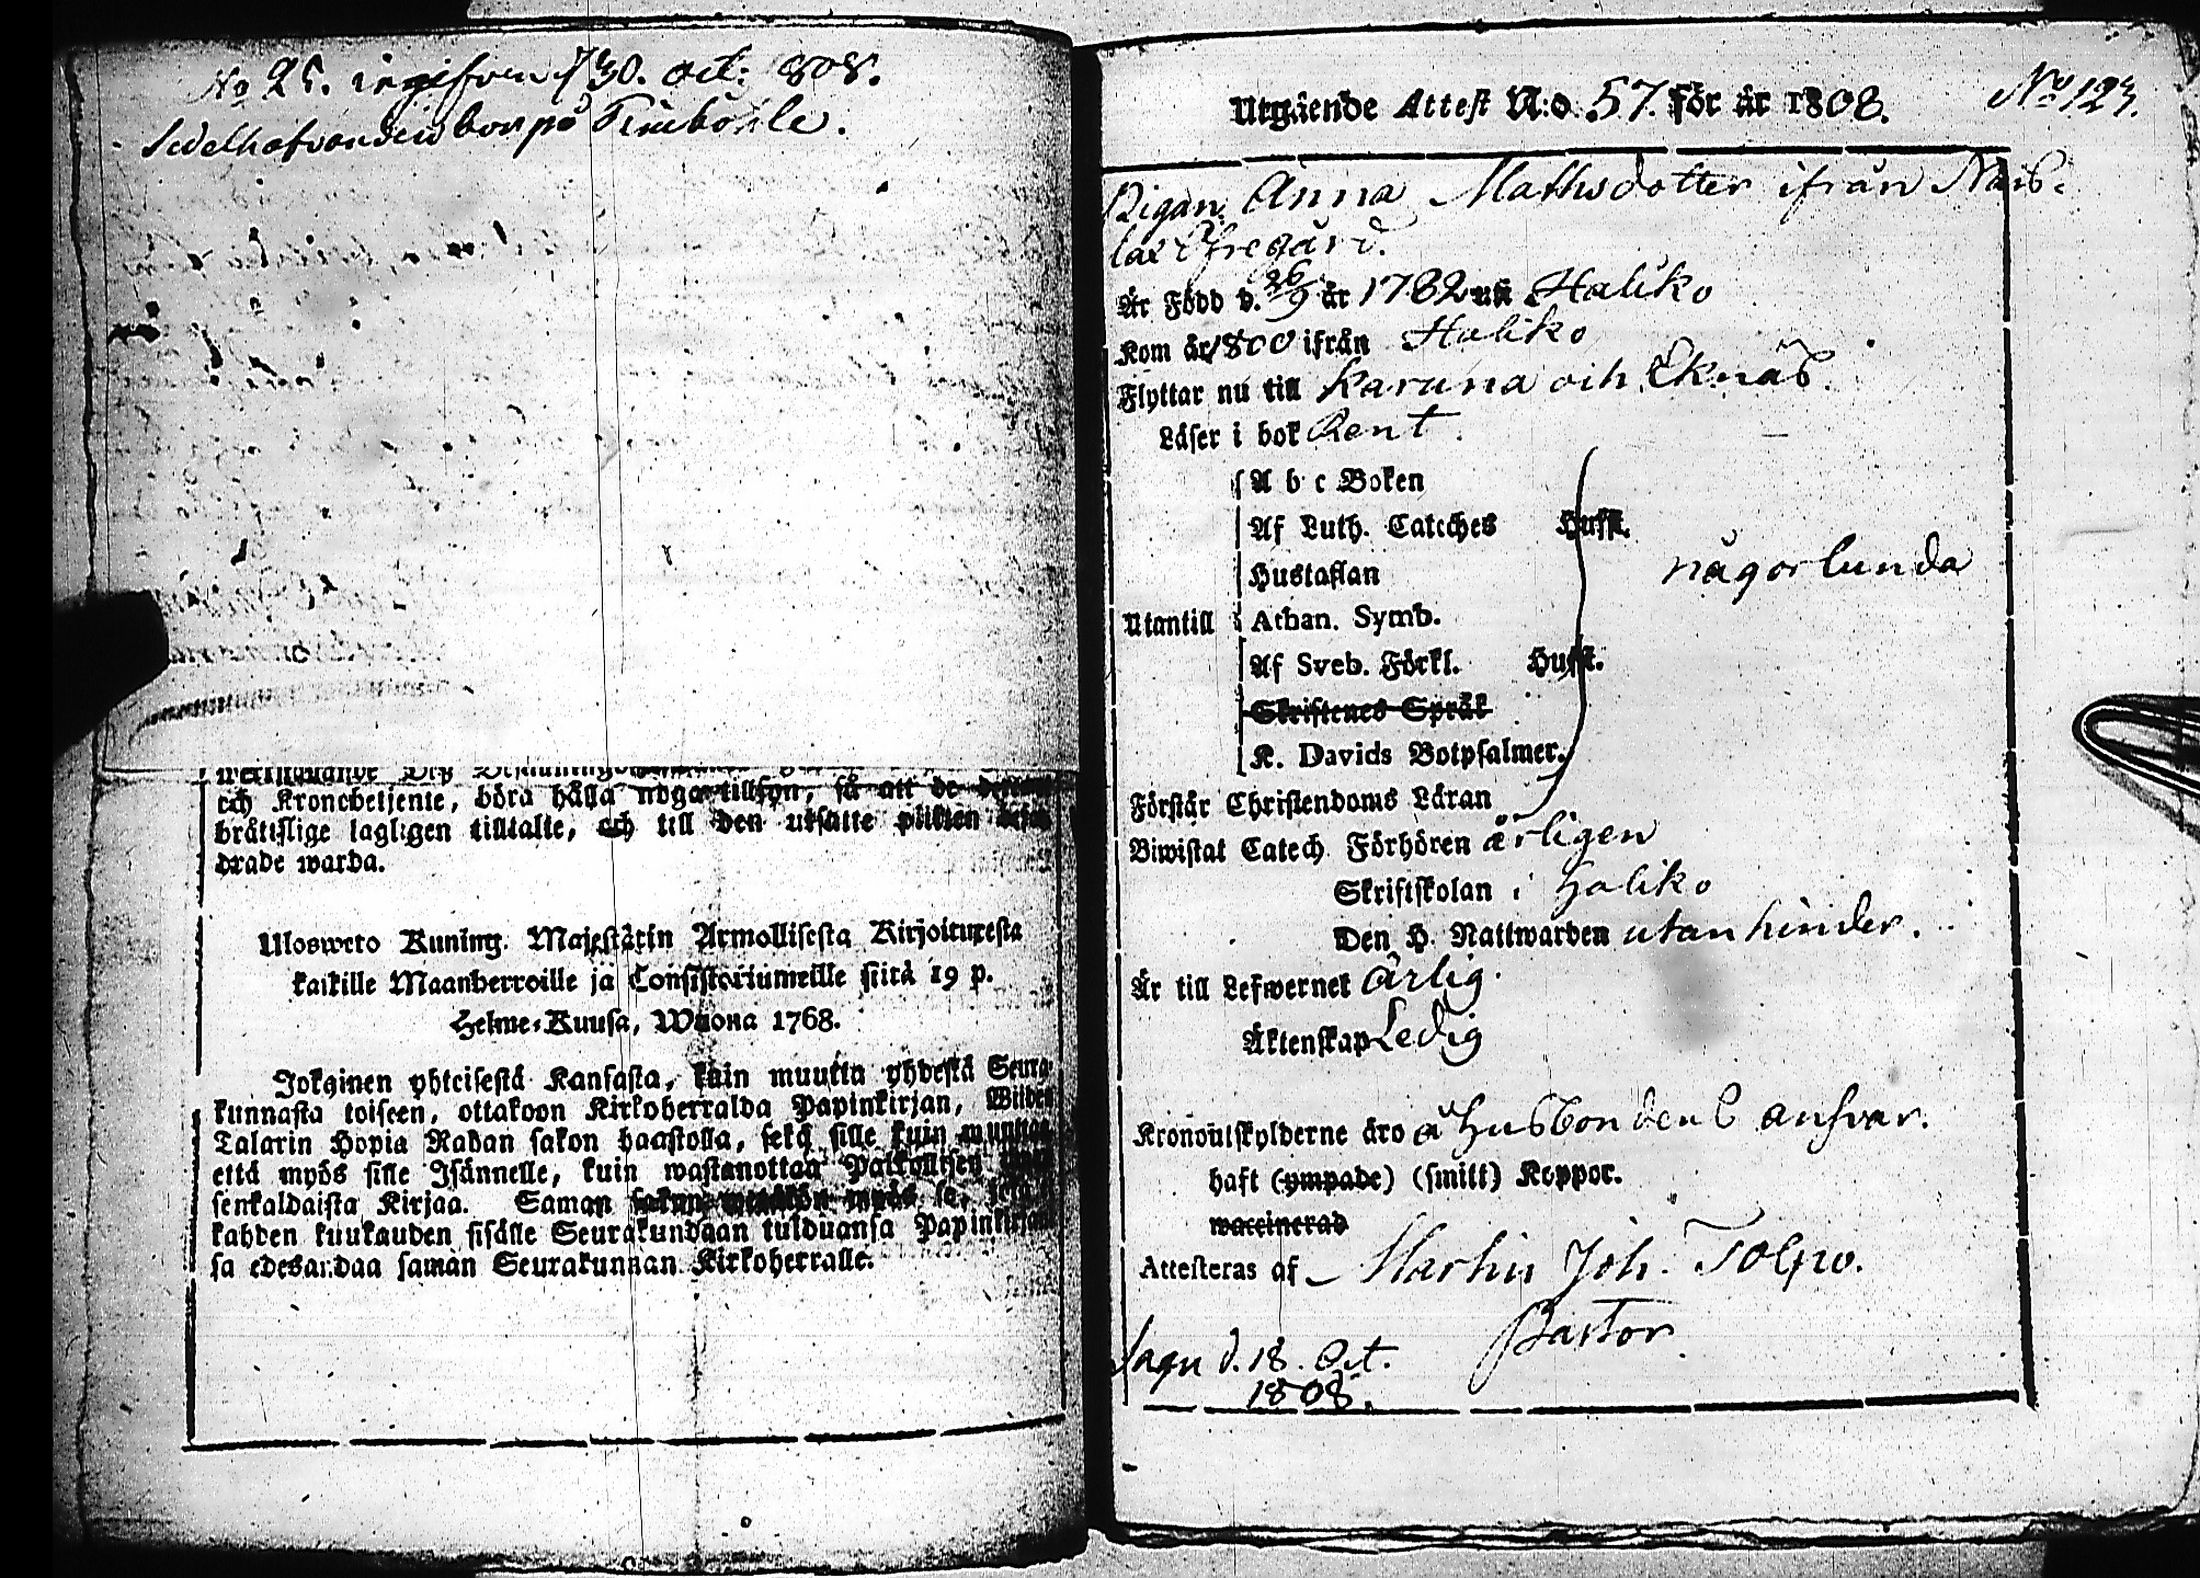 No 25. ingifven d 30. oct: 808.
Sedelhafvanden bor på Fimböhle.
och Kronebetjente, böra hålla noga tillsyn, så att de
brättslige lagligen tilltalte, och till den utsatte plikten
drade warda.
Ulosweto Kuning. Majestätin Armollisesta Kirjoituxesta
kaikille Maanherroille ja Consistoriumeille siitä 19 p.
Helme-Kuusa, Wuona 1768.
Jokainen yhteisestä Kansasta, kuin muutta yhdestä Seura-
kunnasta toiseen, ottakoon Kirkoherralda Papinkirjan, Wiiden
Talarin Hopia Rahan sakon haastolla, sekä sille kuin muunnan
että myös sille Isännelle, kuin wastanottaa Palkollisen
senkaldaista Kirjaa. Saman sakon
kahden kuukauden sisälle Seurakundaan tulduansa Papinkirjan
sa edesandaa saman Seurakunnan Kirkoherralle.
No 123.
Utgående Attest N:o. 57. för år 1808.
Pigan Anna Mathsdotter ifrån Nais-
lax Öfregård.
Är Född d. 26/9 år 1782 uti Haliko
Kom år 1800 ifrån Haliko
Flyttar nu till Karuna och Eknäs.
Läser i bok Rent.
A b c Boken
Af Luth. Cateches Hufst.
Hustaflan någorlunda
Utantill Athan. Symb.
Af Sveb. Förkl. Hufst.
Skriftenes Språk
K. Davids Botpsalmer.
Förstår Christendoms Läran
Biwistat Catech. Förhören årligen
Skriftskolan i Haliko
Den H. Nattwarden utan hinder.
Är till Lefwernet ärlig.
Äktenskap Ledig
Kronoutskylderne äro å Husbondens ansvar.
haft (ympade) (smitt) Koppor.
waccinerad
Attesteras af Martin Joh. Tolpo.
Pastor
Sagu d. 18. Oct.
1808.